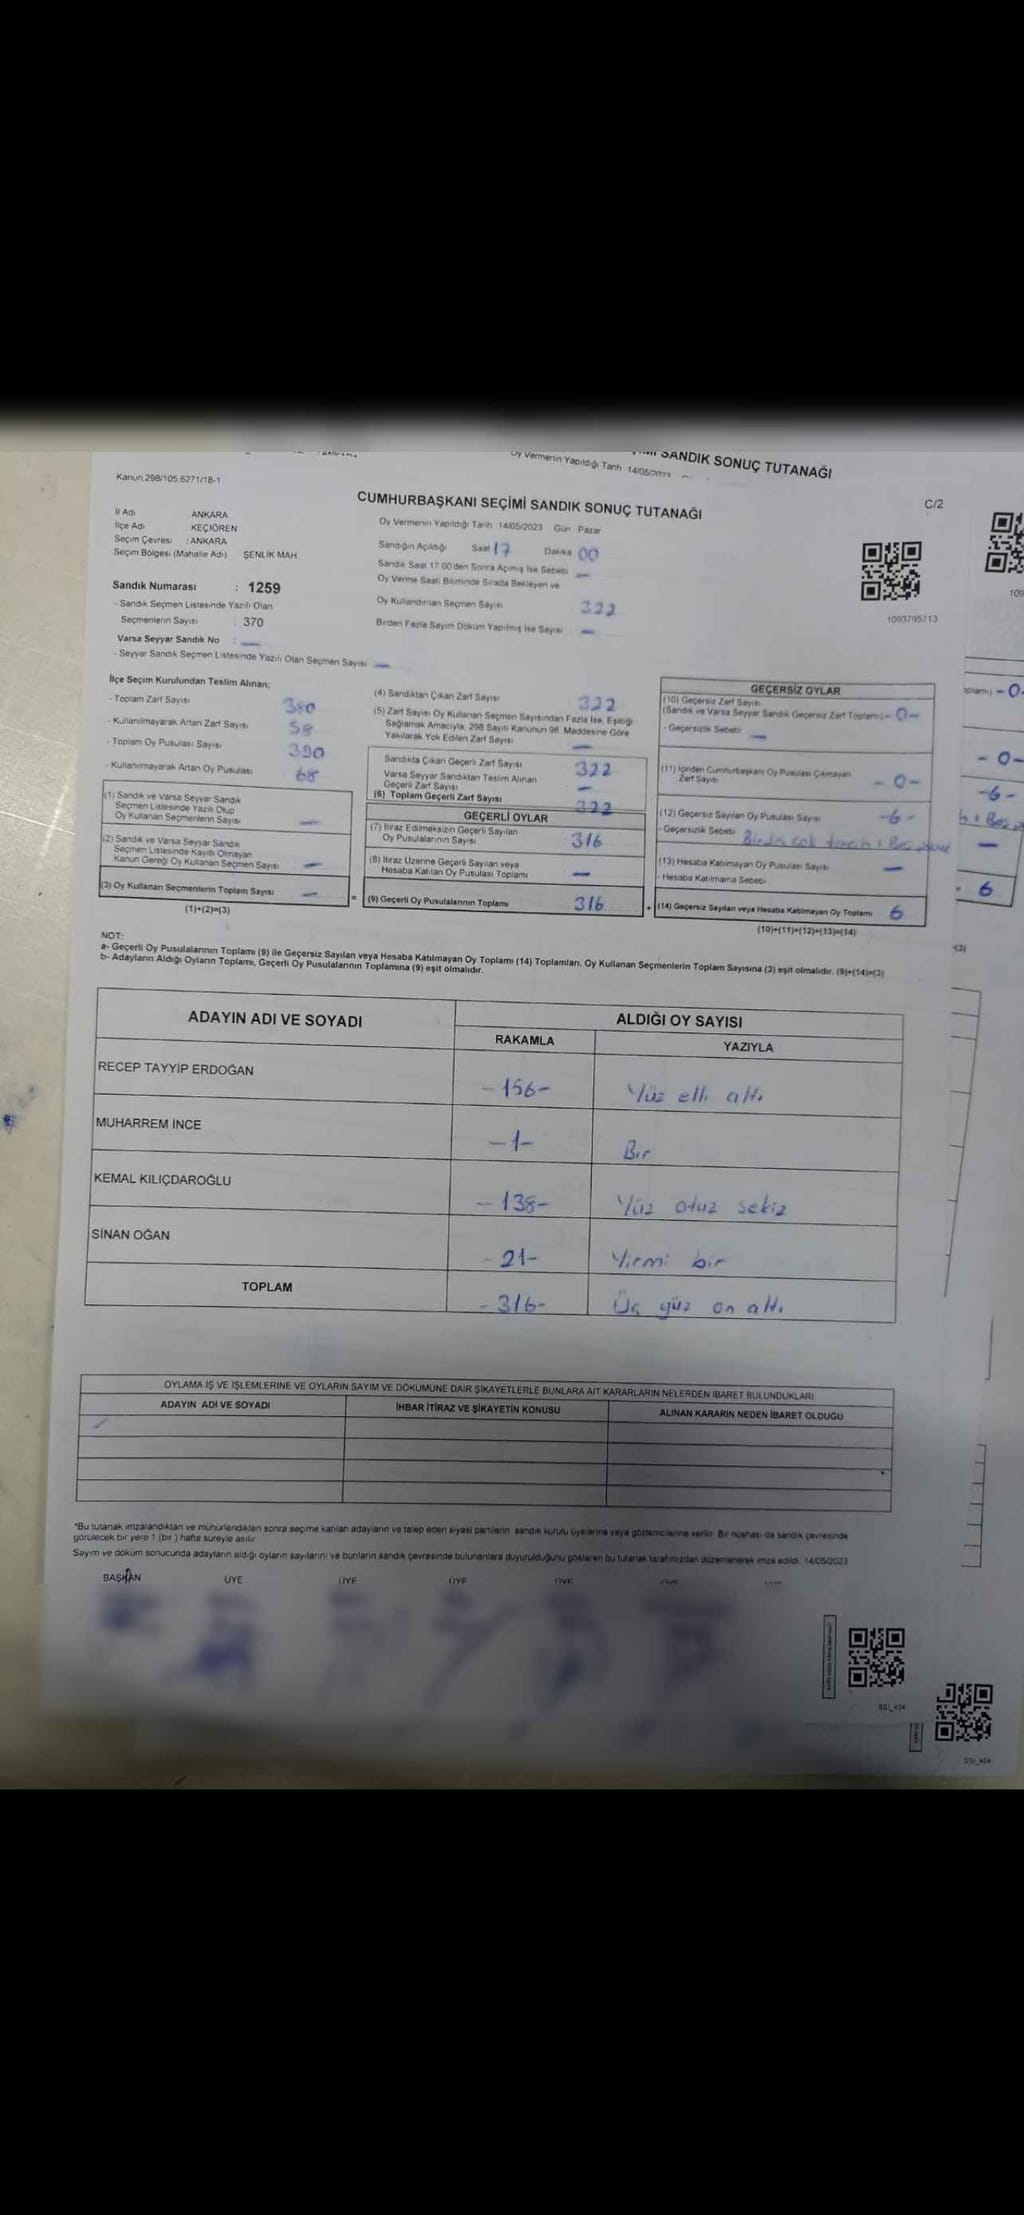 SANDIK SONUÇ TUTANAĞI
Oy Vermenin Yapıldığı Tarih
Kanun.298/105.6271/18-1
C/2
CUMHURBAŞKANI SEÇİMİ SANDIK SONUÇ TUTANAĞI
Oy Vermenin Yapıldığı Tarih :14/05/2023 Gün: Pazar
İl Adı : ANKARA
İlçe Adı : KEÇİÖREN
Seçim Çevresi : ANKARA
Seçim Bölgesi (Mahalle Adı) ŞENLİK MAH.
Sandık Numarası : 1259
- Sandık Seçmen Listesinde Yazılı Olan
Seçmenlerin Sayısı : 370
Varsa Seyyar Sandık No : —
- Seyyar Sandık Seçmen Listesinde Yazılı Olan Seçmen Sayısı —
Sandığın Açıldığı Saat 17 Dakika 00
Sandık Saat 17.00'den Sonra Açmış İse Sebebi —
Oy Verme Saati Bitiminde Sırada Bekleyen ve
Oy Kullandırılan Seçmen Sayısı 322
Birden Fazla Sayım Döküm Yapılmış İse Sayısı —
1093795713
İlçe Seçim Kurulundan Teslim Alınan;
- Toplam Zarf Sayısı 380
- Kullanılmayarak Artan Zarf Sayısı 58
- Toplam Oy Pusulası Sayısı 390
- Kullanılmayarak Artan Oy Pusulası 68
(1) Sandık ve Varsa Seyyar Sandık
Seçmen Listesinde Yazılı Olup
Oy Kullanan Seçmenlerin Sayısı —
(2) Sandık ve Varsa Seyyar Sandık
Seçmen Listesinde Kayıtlı Olmayan
Kanun Gereği Oy Kullanan Seçmen Sayısı —
(3) Oy Kullanan Seçmenlerin Toplam Sayısı —
(1)+(2)=(3)
(4) Sandıktan Çıkan Zarf Sayısı 322
(5) Zarf Sayısı Oy Kullanan Seçmen Sayısından Fazla İse, Eşitliği
Sağlamak Amacıyla, 298 Sayılı Kanunun 98. Maddesine Göre
Yakılarak Yok Edilen Zarf Sayısı —
Sandıkta Çıkan Geçerli Zarf Sayısı 322
Varsa Seyyar Sandıktan Teslim Alınan
Geçerli Zarf Sayısı —
(6) Toplam Geçerli Zarf Sayısı 322
GEÇERLİ OYLAR
(7) İtiraz Edilmeksizin Geçerli Sayılan
Oy Pusulalarının Sayısı 316
(8) İtiraz Üzerine Geçerli Sayılan veya
Hesaba Katılan Oy Pusulası Toplamı —
= (9) Geçerli Oy Pusulalarının Toplamı 316
GEÇERSİZ OYLAR
(10) Geçersiz Zarf Sayısı
(Sandık ve Varsa Seyyar Sandık Geçersiz Zarf Toplamı) -0-
- Geçersizlik Sebebi —
(11) İçinden Cumhurbaşkanı Oy Pusulası Çıkmayan
Zarf Sayısı -0-
(12) Geçersiz Sayılan Oy Pusulası Sayısı -6-
- Geçersizlik Sebebi Birden çok tercih
(13) Hesaba Katılmayan Oy Pusulası Sayısı —
- Hesaba Katılmama Sebebi
+ (14) Geçersiz Sayılan veya Hesaba Katılmayan Oy Toplamı 6
(10)+(11)+(12)+(13)=(14)
NOT:
a- Geçerli Oy Pusulalarının Toplamı (9) ile Geçersiz Sayılan veya Hesaba Katılmayan Oy Toplamı (14) Toplamları, Oy Kullanan Seçmenlerin Toplam Sayısına (3) eşit olmalıdır. (9)+(14)=(3)
b- Adayların Aldığı Oyların Toplamı, Geçerli Oy Pusulalarının Toplamına (9) eşit olmalıdır.
ADAYIN ADI VE SOYADI ALDIĞI OY SAYISI
RAKAMLA YAZIYLA
RECEP TAYYİP ERDOĞAN -156- Yüz elli altı
MUHARREM İNCE -1- Bir
KEMAL KILIÇDAROĞLU -138- Yüz otuz sekiz
SİNAN OĞAN -21- Yirmi bir
TOPLAM -316- Üç yüz on altı
OYLAMA İŞ VE İŞLEMLERİNE VE OYLARIN SAYIM VE DÖKÜMÜNE DAİR ŞİKAYETLERLE BUNLARA AİT KARARLARIN NELERDEN İBARET BULUNDUKLARI
ADAYIN ADI VE SOYADI İHBAR İTİRAZ VE ŞİKAYETİN KONUSU ALINAN KARARIN NEDEN İBARET OLDUĞU
*Bu tutanak imzalandıktan ve mühürlendikten sonra seçime katılan adayların ve talep eden siyasi partilerin sandık kurulu üyelerine veya gözlemcilerine verilir. Bir nüshası da sandık çevresinde
görülecek bir yere 1 (bir) hafta süreyle asılır.
Sayım ve döküm sonucunda adayların aldığı oyların sayılarını ve bunların sandık çevresinde bulunanlara duyurulduğunu gösteren bu tutanak tarafımızdan düzenlenerek imza edildi. 14/05/2023
BAŞKAN ÜYE ÜYE ÜYE ÜYE
SSI_404
SSI_404